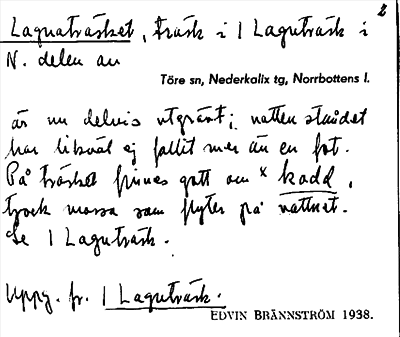 2
Lagnaträsket, träsk i 1 Lagnträsk i
N. delen av
Töre sn, Nederkalix tg, Norrbottens l.
är nu delvis utgrävt; vattenståndet
har likväl ej fallit mer än en fot.
På träsket finnes gott om x kodd,
tjock massa som flyter på vattnet.
Se 1 Lagnträsk.
Uppg. fr. 1 Lagnträsk.
EDVIN BRÄNNSTRÖM 1938.